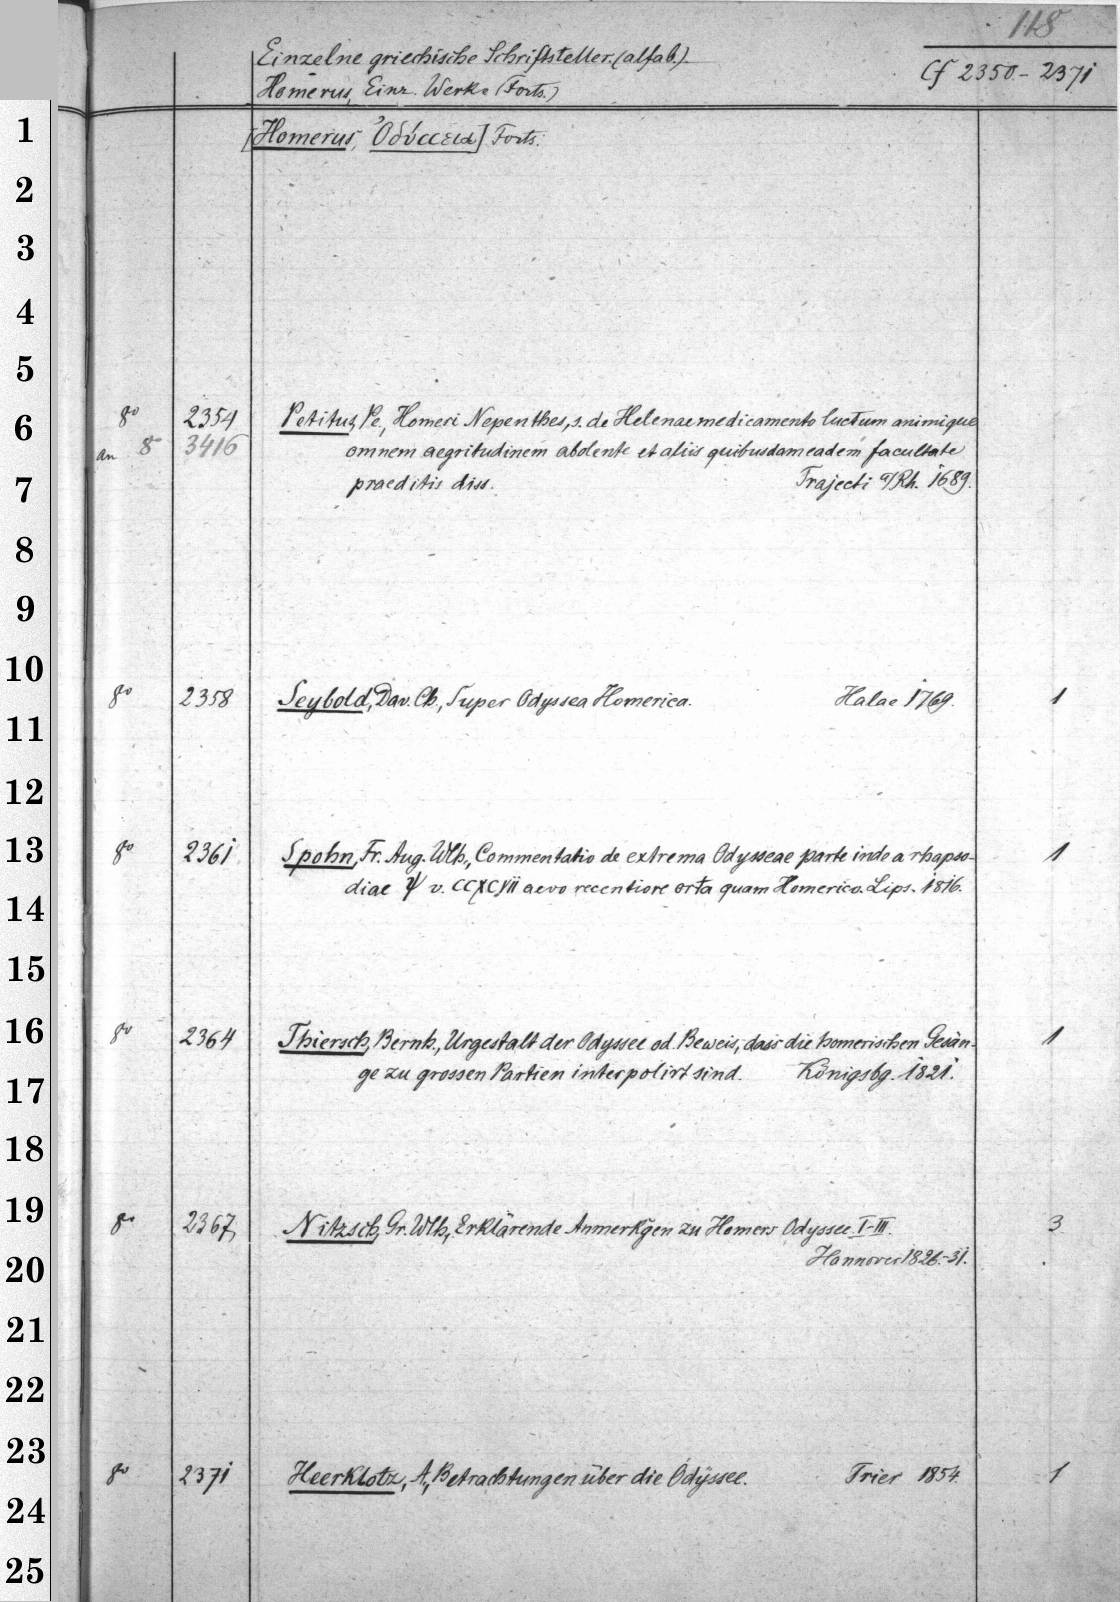 118
Einzelne griechische Schriftsteller. (alfab.)
Cf 2350-2371
Homerus, Einz. Werke (Forts.)
1 [Homerus, Ὀδύσσεια] Forts.
2
3
4
5
6 8o 2354 Petitus, Pe., Homeri Nepenthes, s. de Helenae medicamento luctum animique
an 8o 3416 omnem aegritudinem abolente et aliis quibusdam eadem facultate
7 praeditis diss. Trajecti a/Rh. 1689.
8
9
10
8o 2358 Seybold, Dav. Ch., Super Odyssea Homerica. Halae 1769. 1
11
12
13 8o 2361 Spohn, Fr. Aug. Wlh., Commentatio de extrema Odysseae parte inde a rhapso-
1
diae ψ v. CCXCVII aevo recentiore orta quam Homerico. Lips. 1816.
14
15
16 8o 2364 Thiersch, Bernh., Urgestalt der Odyssee od. Beweis, dass die homerischen Gesän-
1
ge zu grossen Partien interpolirt sind. Königsbg. 1821.
17
18
19 8o 2367 Nitzsch, Gr. Wlh., Erklärende Anmerkgen zu Homers Odyssee I-III. 3
20 Hannover 1826-31.
21
22
23
8o 2371 Heerklotz, A., Betrachtungen über die Odyssee. Trier 1854. 1
24
25